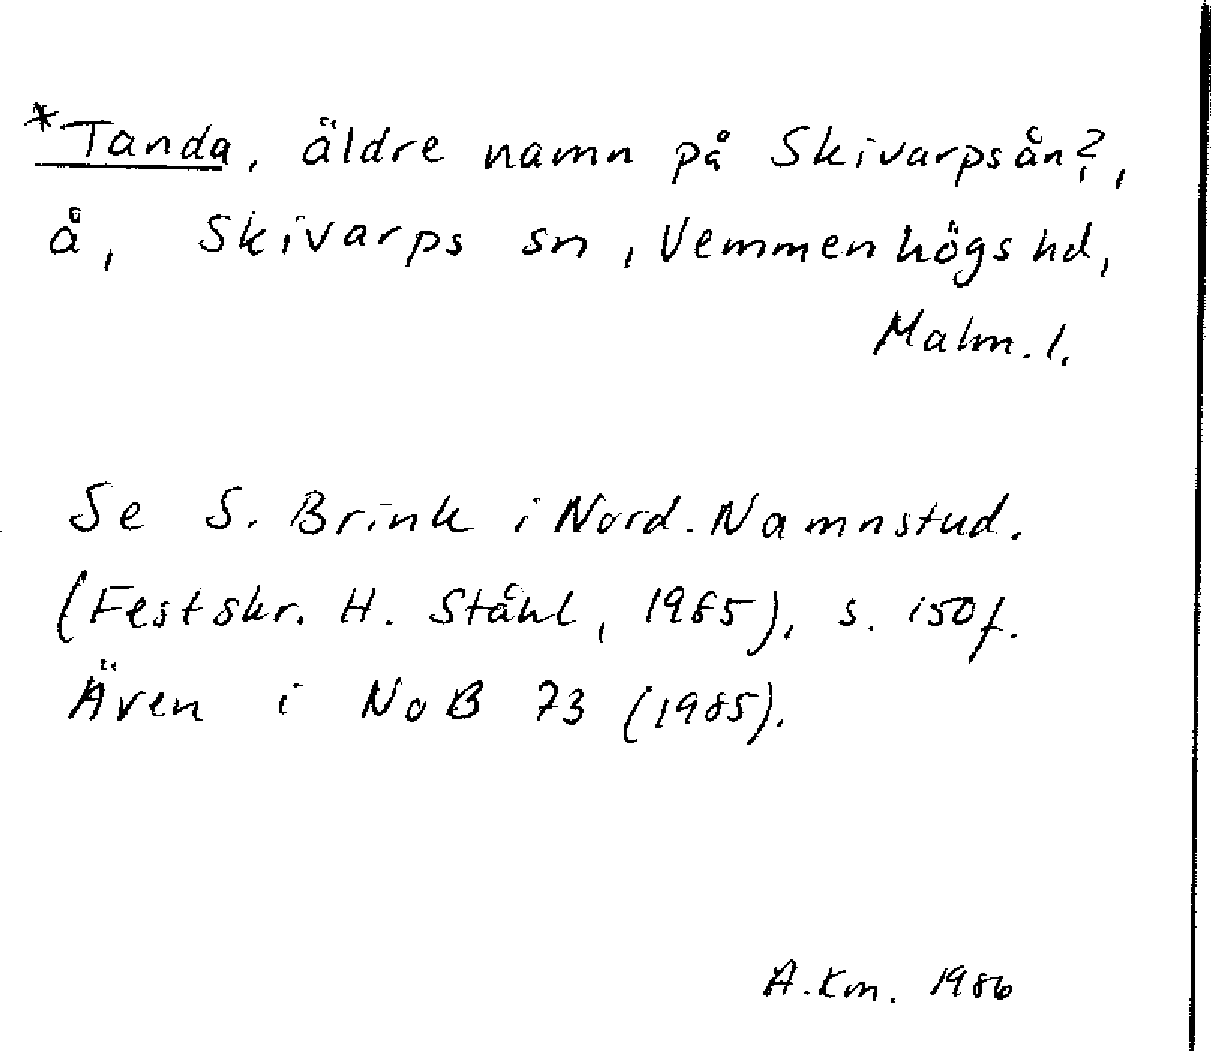 *Tanda, äldre namn på Skivarpsån?,
å, Skivarps sn, Vemmenhögs hd,
Malm. l.
Se S. Brink i Nord. Namnstud.
(Festskr. H. Ståhl, 1985), s. 150f.
Även i NoB 73 (1985).
A.Km. 1986